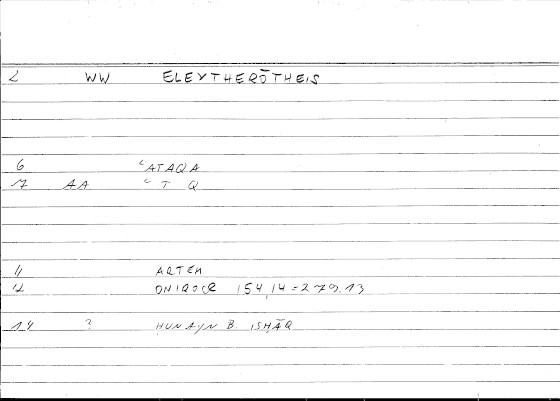 2 WW ELEYTHERŌTHEIS
6 ʿATAQA
7 AA ʿ T Q
11 ARTEM
12 ONIROCR 154,14=279.13
14 ? HUNAYN B. ISHĀQ